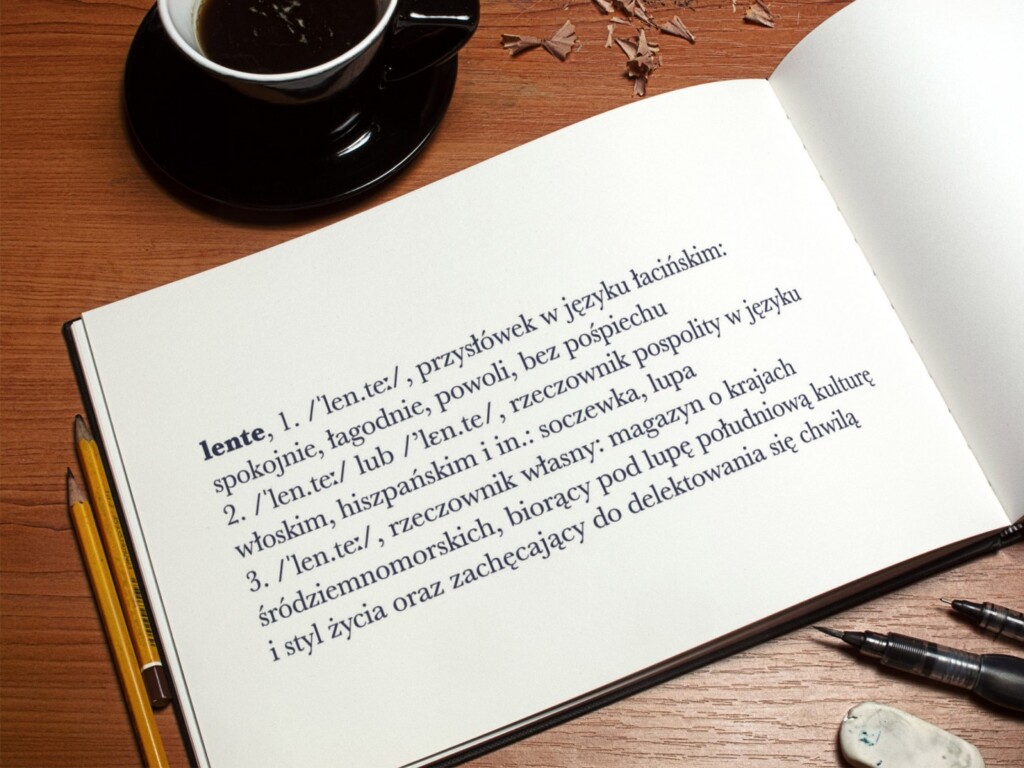 lente, 1. /ˈlen.teː/, przysłówek w języku łacińskim:
spokojnie, łagodnie, powoli, bez pośpiechu
2. /ˈlen.teː/ lub /’lɛn.te/, rzeczownik pospolity w języku
włoskim, hiszpańskim i in.: soczewka, lupa
3. /ˈlen.teː/, rzeczownik własny: magazyn o krajach
śródziemnomorskich, biorący pod lupę południową kulturę
i styl życia oraz zachęcający do delektowania się chwilą